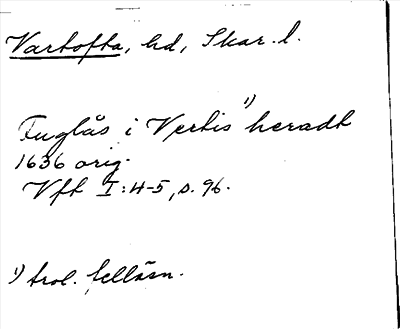 Vartofta, hd, Skar. l.
Fuglås i Vertis¹⁾ heradt
1636 orig.
Vft I:4-5, s. 96.
¹⁾ trol. felläsn.